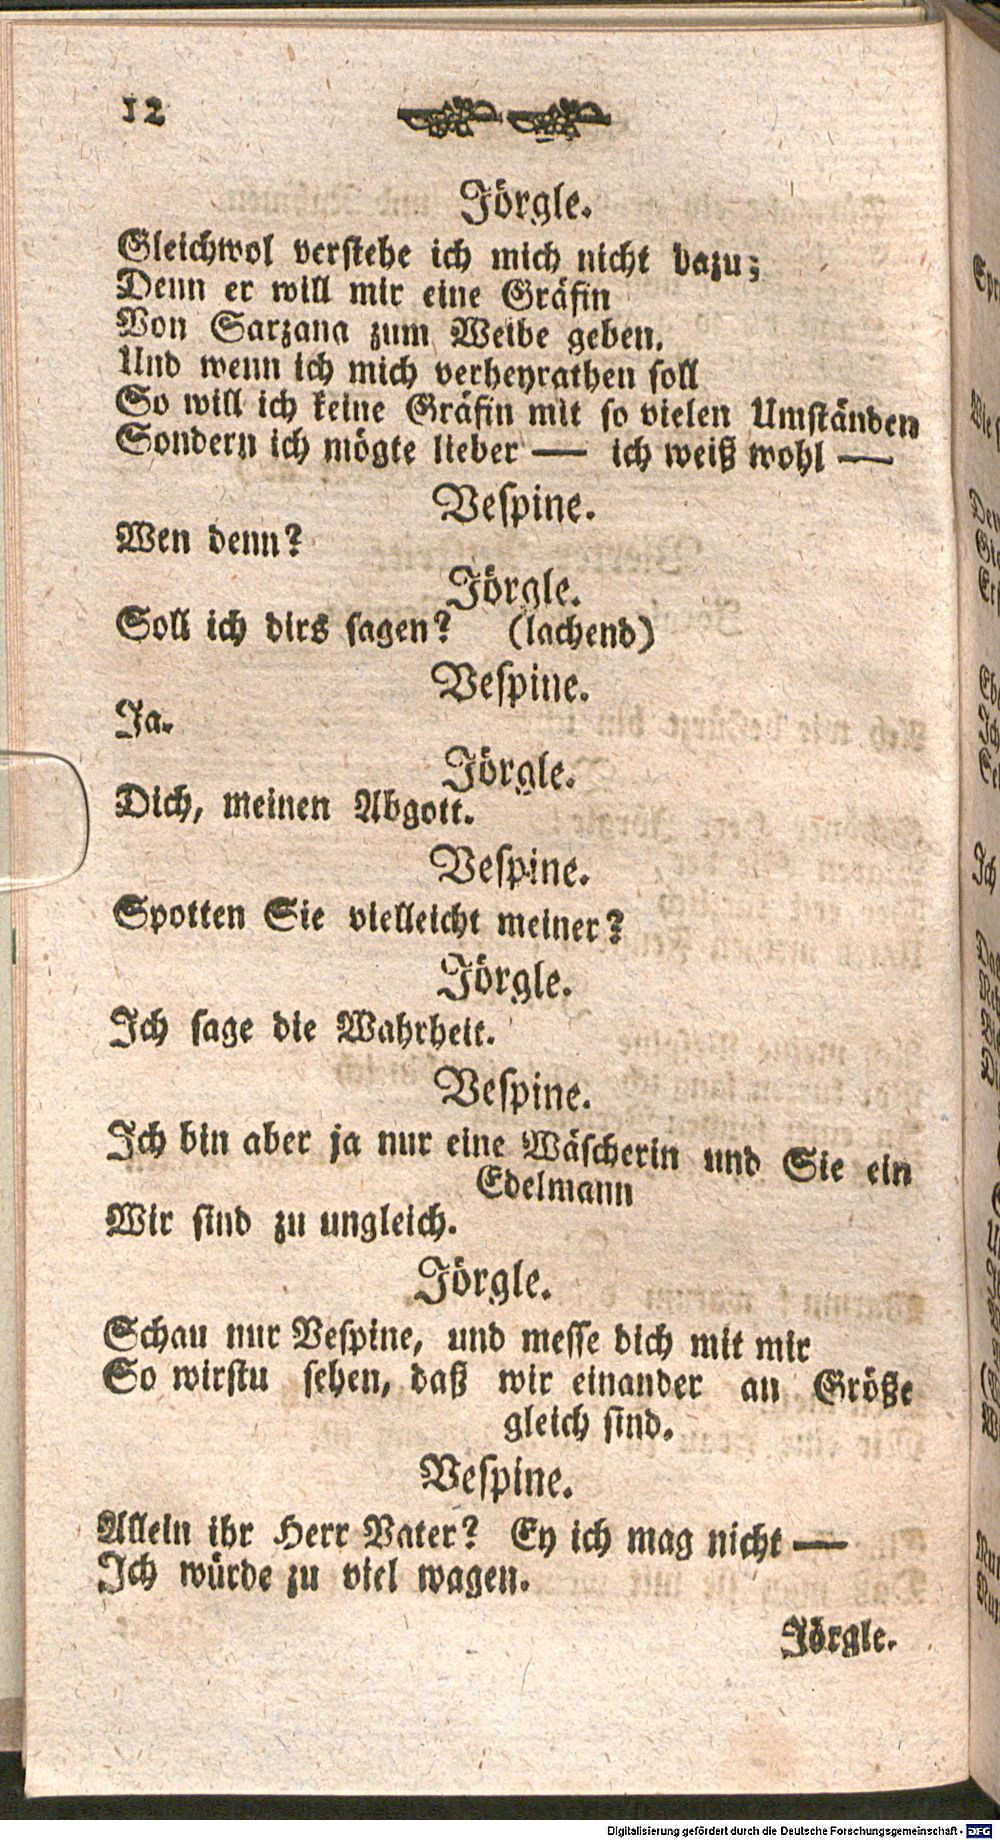 12
Jörgle.
Gleichwol verstehe ich mich nicht dazu;
Denn er will mir eine Gräfin
Von Sarzana zum Weibe geben.
Und wenn ich mich verheyrathen soll
So will ich keine Gräfin mit so vielen Umständen
Sondern ich mögte lieber — ich weiß wohl —
Vespine.
Wen denn?
Jörgle.
Soll ich dirs sagen? (lachend)
Vespine.
Ja.
Jörgle.
Dich, meinen Abgott.
Vespine.
Spotten Sie vielleicht meiner?
Jörgle.
Ich sage die Wahrheit.
Vespine.
Ich bin aber ja nur eine Wäscherin und Sie ein
Edelmann
Wir sind zu ungleich.
Jörgle.
Schau nur Vespine, und messe dich mit mir
So wirstu sehen, daß wir einander an Größe
gleich sind.
Vespine.
Allein ihr Herr Vater? Ey ich mag nicht —
Ich würde zu viel wagen.
Jörgle.
Digitalisierung gefördert durch die Deutsche Forschungsgemeinschaft - DFG